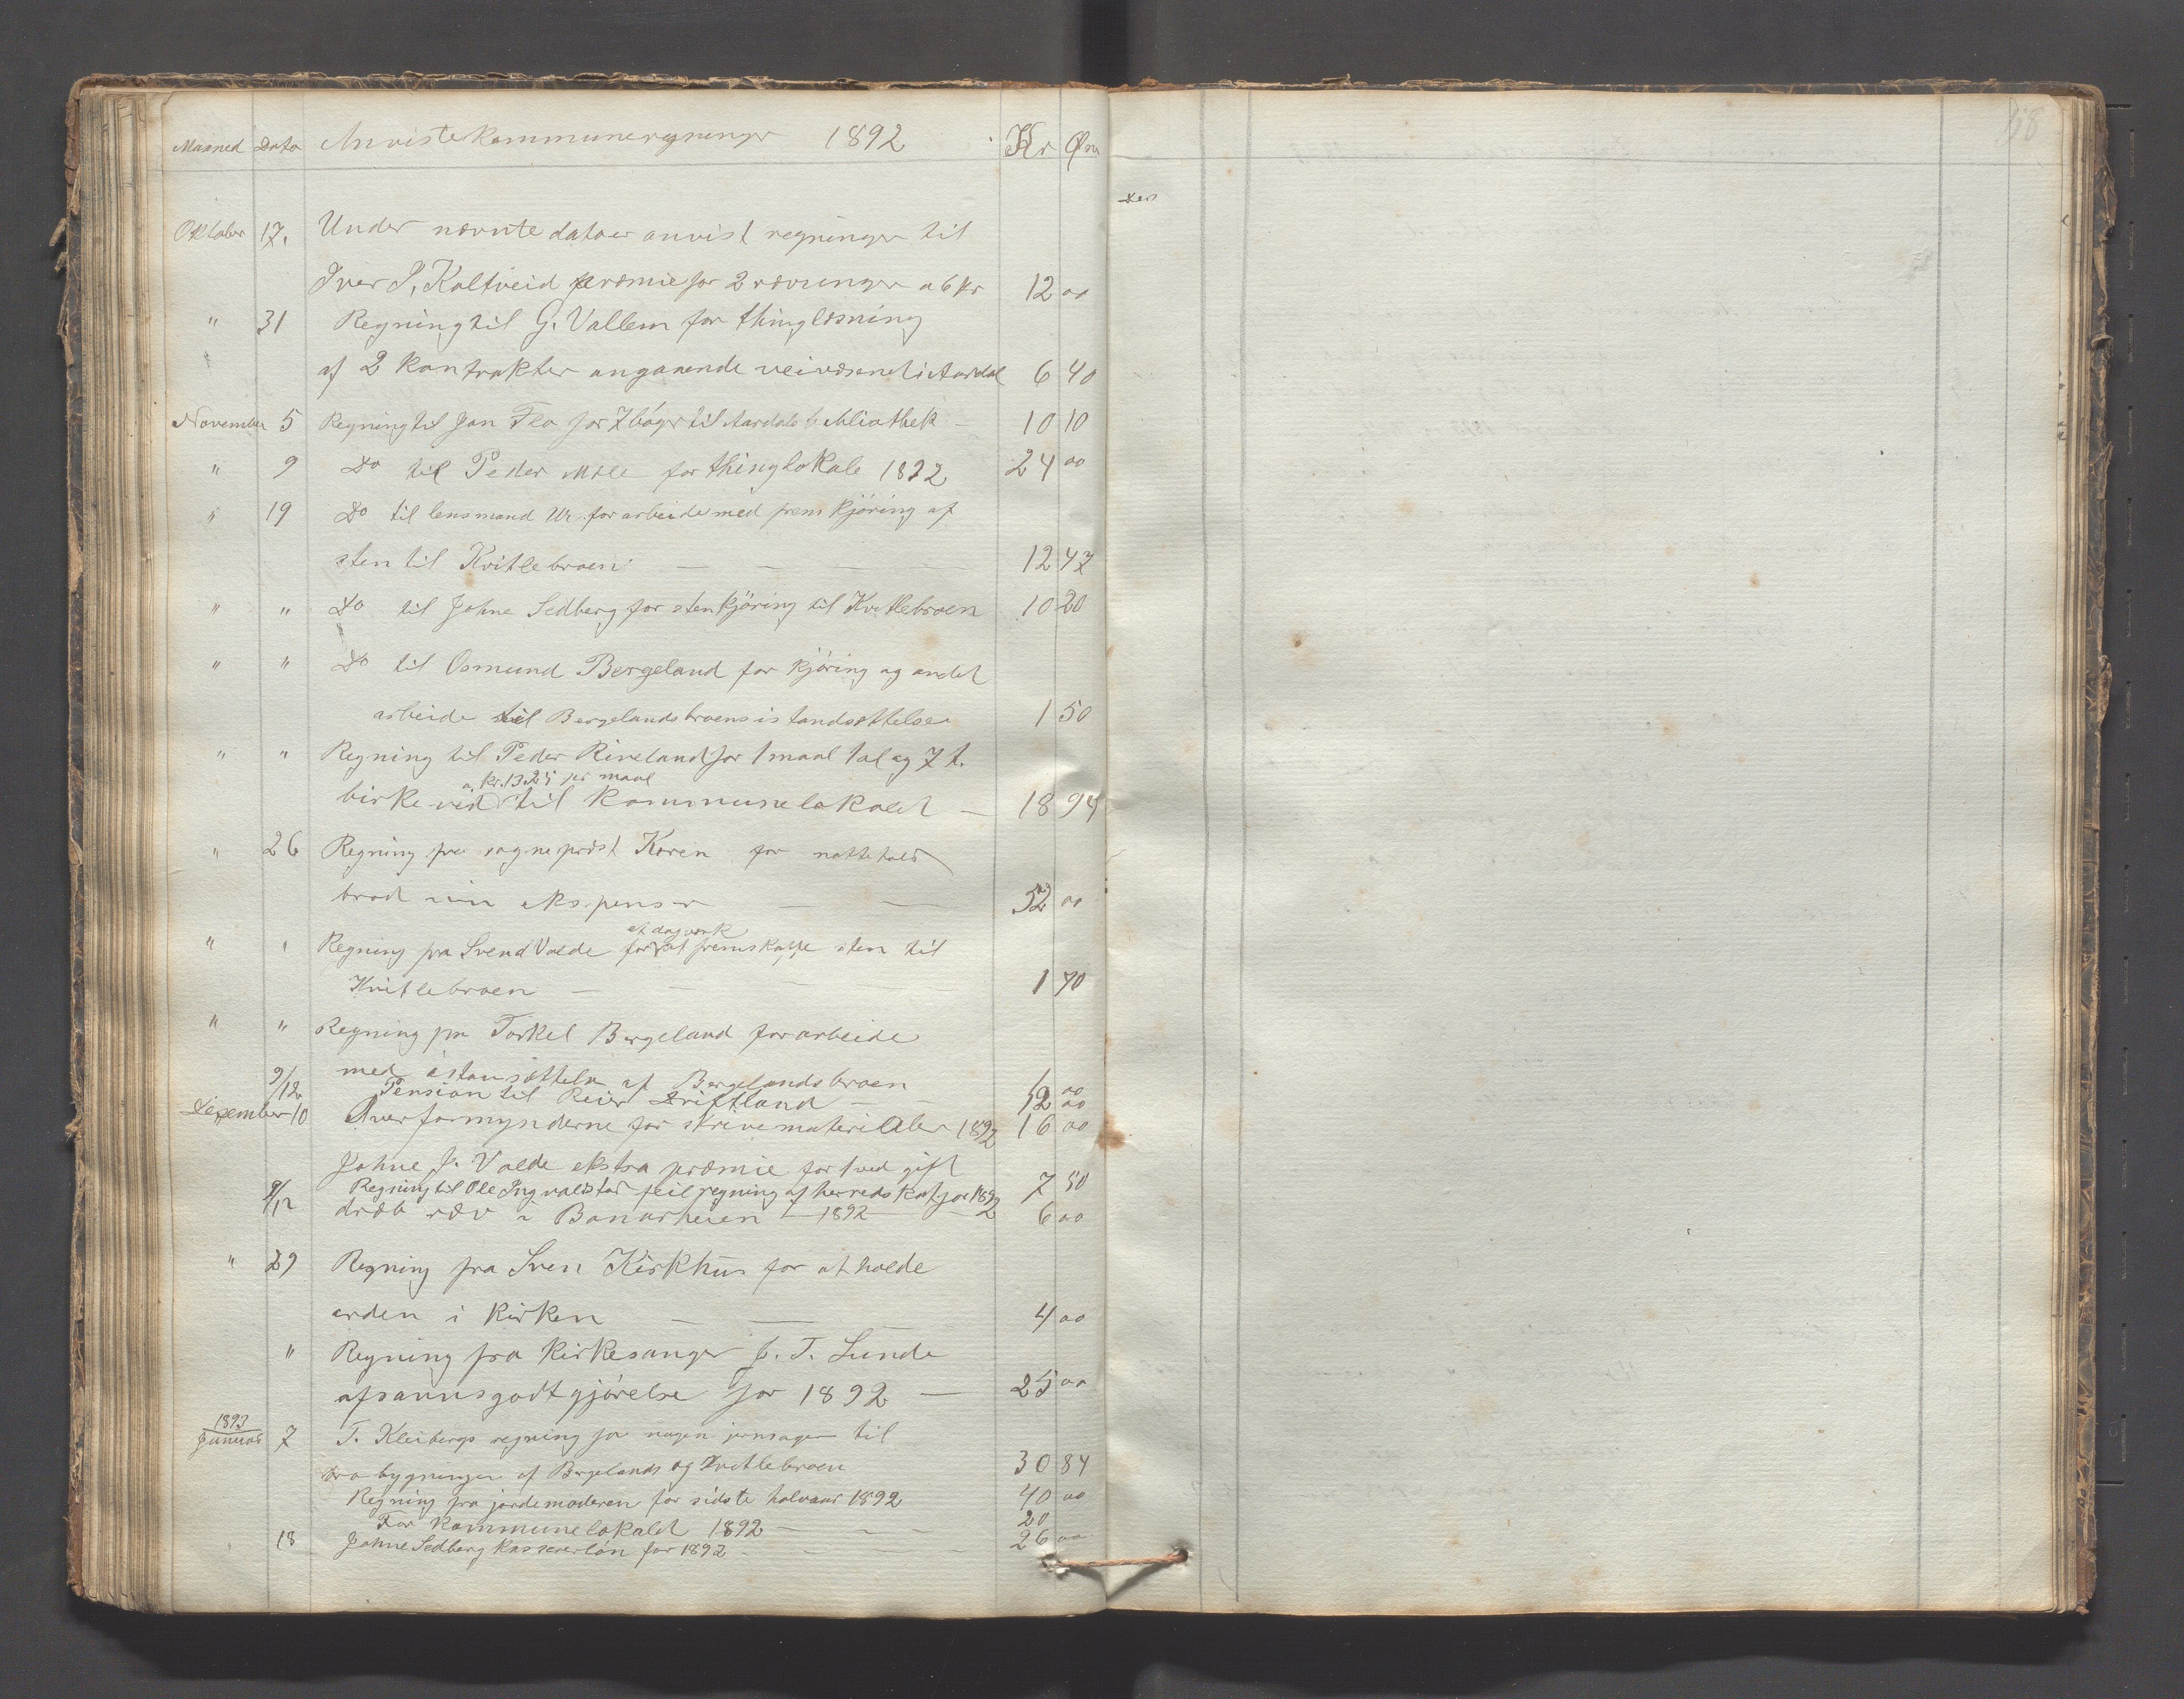 Maaned Dato Anviste kommuneregninger 1892 Kr Øre
Oktober 17. Under nævnte datoer anvist regninger til
Iver P. Kaltveid præmie for 2 rævunger a 6 kr 12 00
" 31 Regning til G. Vallem for thinglæsning
" af 2 kontrakter angaaende veivæsenet i Aardal 6 40
November 5 Regning til Jon Flo for 7 bøger til Aardals bibliothek – 10 10
" 9 Do til Peder Mæle for thinglokale 1892 24 00
" 19 Do til lensmand Ur for arbeide med frem kjøring af
sten til Kvitlebroen – – – – 12 47
" " Do til Johne Sedberg for sten kjøring til Kvitlebroen 10 20
" " Do til Osmund Bergeland for kjøring og andet
arbeide til Bergelandsbroens istandsættelse 1 50
" " Regning til Peder Riveland for 1 maal 1 al og 7 t.
a. kr. 13.25 per maal
birke ved til kommunelokalet – 18 94
" 26 Regning fra sogneprest Koren for nattehold
brød vin ekspenser – – 52 00
et dagværk
" " Regning fra Svend Valde for at fremskaffe sten til
Kvitlebroen – – – 1 70
" " Regning fra Torkel Bergeland for arbeide
med istansættelse af Bergelandsbroen 1 00
9/12 Pension til Reier Driftland – – 12 00
Dezember 10 Overformynderne for skrivematerialer 1892 16 00
Johne J. Valde ekstra præmie for 1 ved gift
9/12 Regning til Ole Ingvaldstad feil regning af herredskat for 1892 7 50
dræb ræv i Bonarheien – 1892 – 6 00
" 29 Regning fra Sven Kirkhus for at holde
orden i kirken – – – 4 00
" Regning fra kirkesanger J. T. Lunde
afsavnsgodtgjørelse for 1892 – 25 00
1893
Januar 7 T. Kleibergs regning for nogen jernsager til
bro bygninger af Bergelands og Kvitlebroen 30 84
Regning fra jordemoderen for sidste halvaar 1892 40 00
For kommunelokalet 1892 – – – 20
" 18 Johne Sedberg kassererløn for 1892 – – – 26 00
58